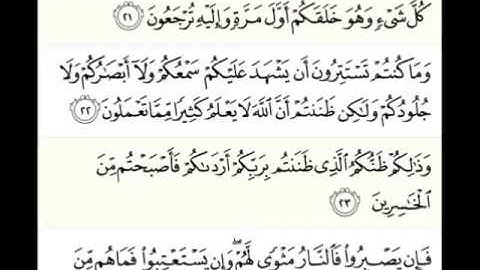 كُلَّ شَىْءٍ وَهُوَ خَلَقَكُمْ أَوَّلَ مَرَّةٍ وَإِلَيْهِ تُرْجَعُونَ ٢١
وَمَا كُنتُمْ تَسْتَتِرُونَ أَن يَشْهَدَ عَلَيْكُمْ سَمْعُكُمْ وَلَآ أَبْصَٰرُكُمْ وَلَا
جُلُودُكُمْ وَلَٰكِن ظَنَنتُمْ أَنَّ ٱللَّهَ لَا يَعْلَمُ كَثِيرًا مِّمَّا تَعْمَلُونَ ٢٢
وَذَٰلِكُمْ ظَنُّكُمُ ٱلَّذِى ظَنَنتُم بِرَبِّكُمْ أَرْدَىٰكُمْ فَأَصْبَحْتُم مِّنَ
ٱلْخَٰسِرِينَ ٢٣
فَإِن يَصْبِرُوا۟ فَٱلنَّارُ مَثْوًى لَّهُمْ ۖ وَإِن يَسْتَعْتِبُوا۟ فَمَا هُم مِّنَ